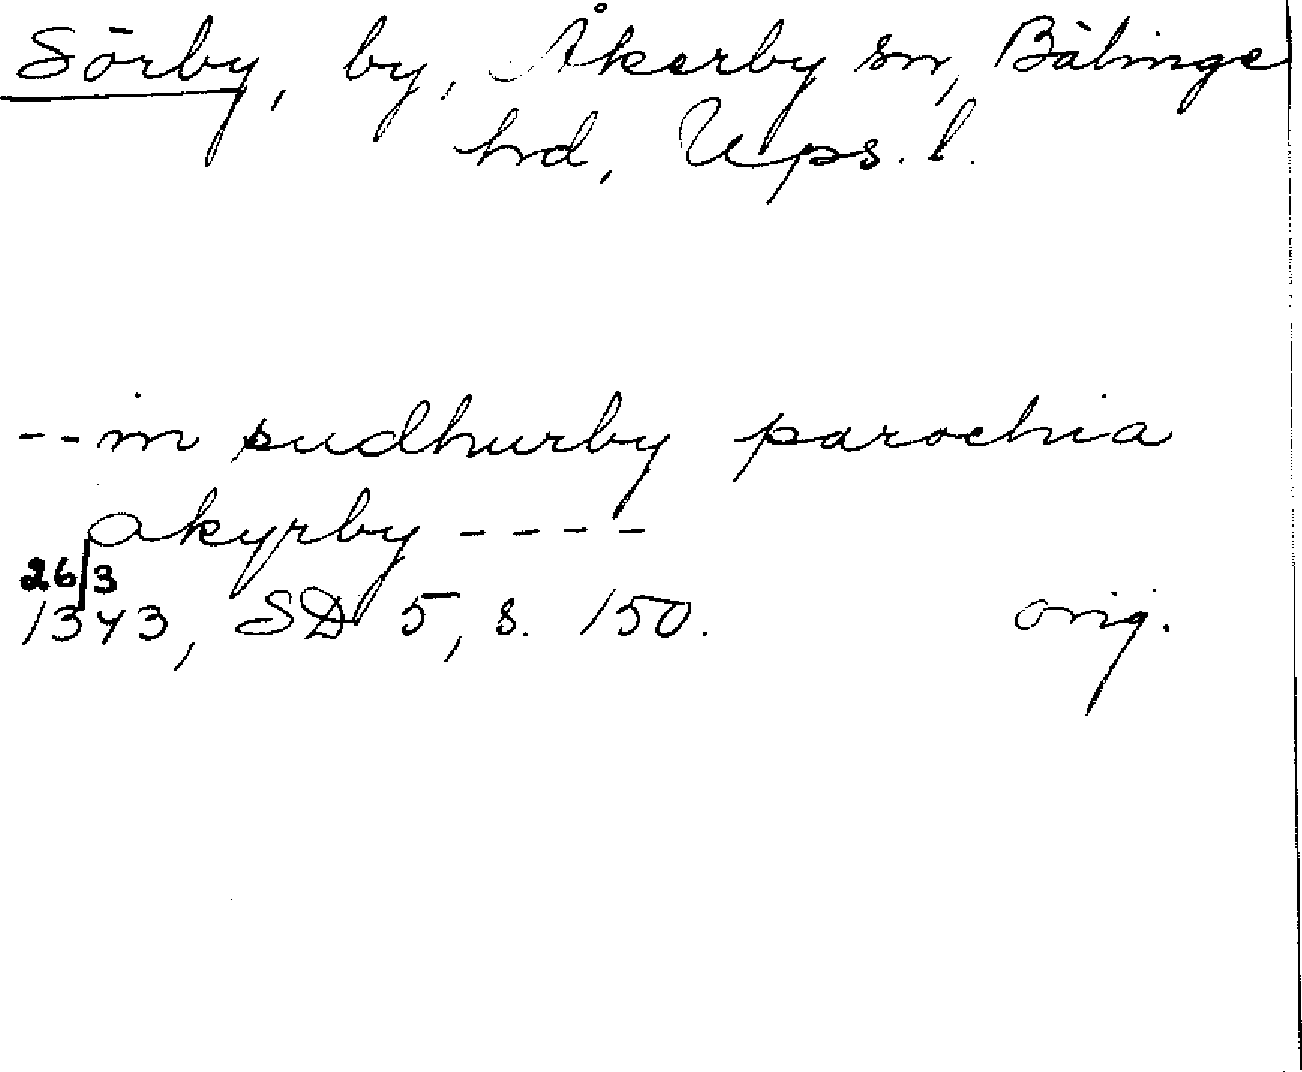 Sörby, by, Åkerby sn, Bälinge
hd, Ups. l.
--in sudhurby parochia
akyrby ----
26/3
1343, SD 5, s. 150. orig.